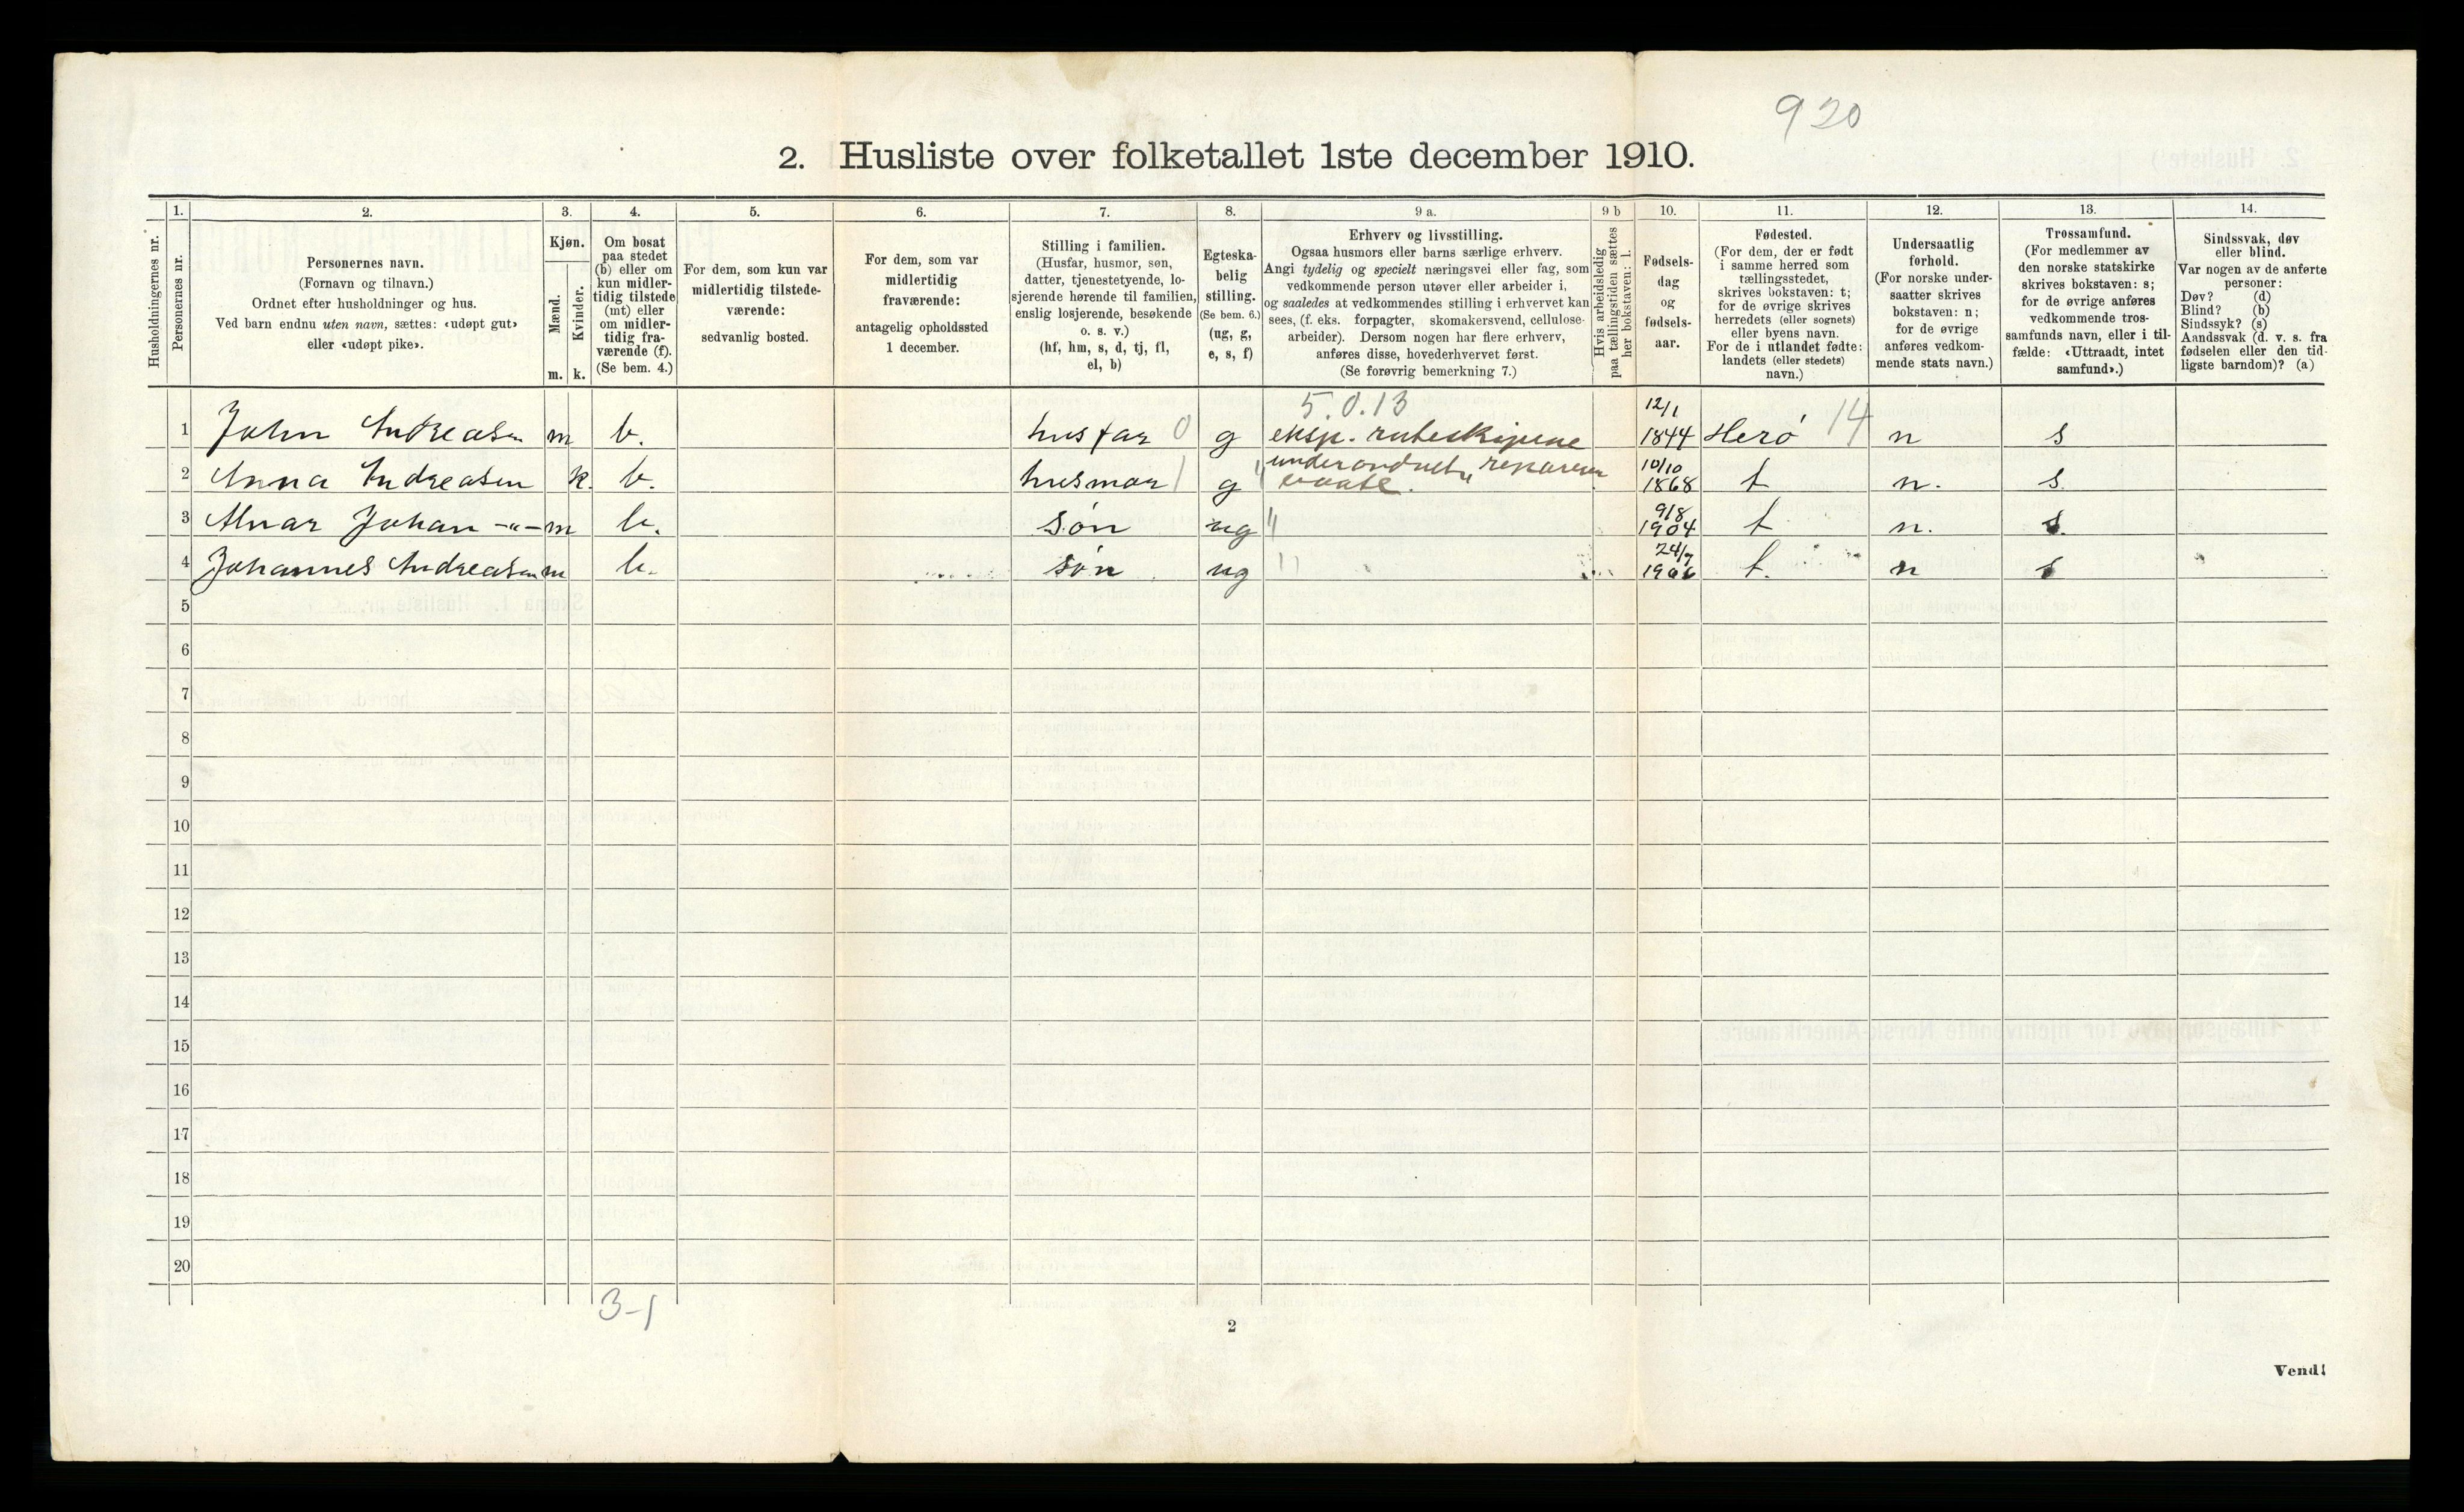 920
2. Husliste over folketallet 1ste december 1910.
Husholdningernes nr.
1.
Personernes nr.
2.
Personernes navn.
(Fornavn og tilnavn.)
Ordnet efter husholdninger og hus.
Ved barn endnu uten navn, sættes: «udøpt gut»
eller «udøpt pike».
3.
Kjøn.
Mænd.
Kvinder.
m. k.
4.
Om bosat
paa stedet
(b) eller om
kun midler-
tidig tilstede
(mt) eller
om midler-
tidig fra-
værende (f).
(Se bem. 4.)
5.
For dem, som kun var
midlertidig tilstede-
værende:
sedvanlig bosted.
6.
For dem, som var
midlertidig
fraværende:
antagelig opholdssted
1 december.
7.
Stilling i familien.
(Husfar, husmor, søn,
datter, tjenestetyende, lo-
sjerende hørende til familien,
enslig losjerende, besøkende
o. s. v.)
(hf, hm, s, d, tj, fl,
el, b)
8.
Egteska-
belig
stilling.
(Se bem. 6.)
(ug, g,
e, s, f)
9 a.
Erhverv og livsstilling.
Ogsaa husmors eller barns særlige erhverv.
Angi tydelig og specielt næringsvei eller fag, som
vedkommende person utøver eller arbeider i,
og saaledes at vedkommendes stilling i erhvervet kan
sees, (f. eks. forpagter, skomakersvend, cellulose-
arbeider). Dersom nogen har flere erhverv,
anføres disse, hovederhvervet først.
(Se forøvrig bemerkning 7.)
9 b
Hvis arbeidsledig
paa tællingstiden sættes
her bokstaven: l.
10.
Fødsels-
dag
og
fødsels-
aar.
11.
Fødested.
(For dem, der er født
i samme herred som
tællingsstedet,
skrives bokstaven: t;
for de øvrige skrives
herredets (eller sognets)
eller byens navn.
For de i utlandet fødte:
landets (eller stedets)
navn.)
12.
Undersaatlig
forhold.
(For norske under-
saatter skrives
bokstaven: n;
for de øvrige
anføres vedkom-
mende stats navn.)
13.
Trossamfund.
(For medlemmer av
den norske statskirke
skrives bokstaven: s;
for de øvrige anføres
vedkommende tros-
samfunds navn, eller i til-
fælde: «Uttraadt, intet
samfund».)
14.
Sindssvak, døv
eller blind.
Var nogen av de anførte
personer:
Døv? (d)
Blind? (b)
Sindssyk? (s)
Aandssvak (d. v. s. fra
fødselen eller den tid-
ligste barndom)? (a)
5.0.13
1 John Andreasen m b. husfar 0 g eksp. ruteskipene 12/1 1844 Herö 14 n s
2 Anna Andreasen k. b. husmor 1 g underordnet, 10/10 1868 t n. s
3 Alnar Johan -"- m b. søn ug " 9/8 1904 t n. s.
4 Johannes Andreasen m b. søn ug " 24/7 1906 t. n s
5
6
7
8
9
10
11
12
13
14
15
16
17
18
19
20
3-1
2
Vend!